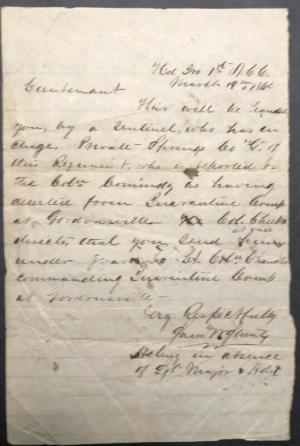 Hd Qrs 1st
March 19th 1864
Lieutenant
This will be handed
you, by a Sentinel, who has in
charge, Private Springs Co "G" of
this Regiment, who is reported to
the Col Comdg as having
deserted from Quarantine Camp
at Gordonsville Col.
directs, that you send
under guard to Lt
commanding Quarintine Camp
at Gordonsville
Very Respectfully
Acting in absence
of Sgt Major & Adjt